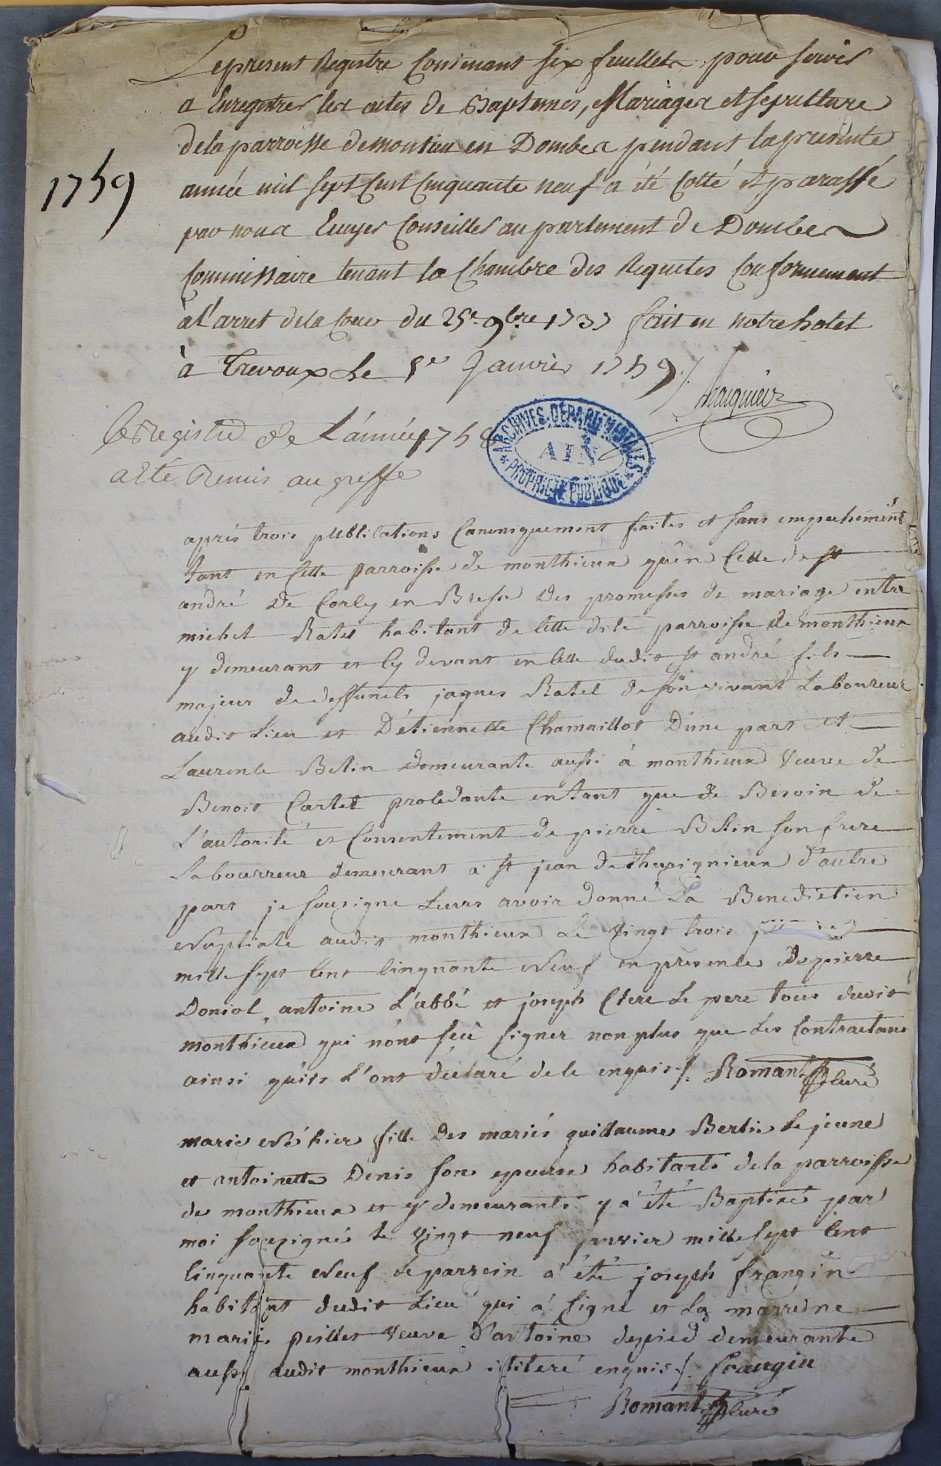 Le present Registre Contenant six feuillets pour servir
a Enregistrer les actes de Baptemes, Mariages et sepulture
de la parroisse de montieu en Dombes pendant la presente
année mil sept Cent Cinquante neuf a été Cotté et paraffé
1759
par nous Ecuyer Conseiller au parlement de Dombes
Commissaire tenant la Chambre des Requetes Conformement
à l'arret de la Cour du 25e 9bre 1737 fait en notre hotel
à Trevoux Le 1er Janvier 1759
Le Registre de L'année 1758
a été Remis au greffe
ARCHIVES DÉPARTEMENTALES
AIN
PROPRIÉTÉ PUBLIQUE
aprés trois publications Canoniquement faites et sans empechement
tant en cette parroisse de monthieux qu'en Celle de st
andré De Corcy en Bresse Des promesses de mariage entre
michel Ratel habitant de cette dite parroisse de monthieux
y demeurant et cy devant en celle dudit st andré fils
majeur de deffuncts jaques Ratel de son vivant Laboureur
audit Lieu et D'étiennette Chamaillot D'une part et
Laurence Belin demeurante aussi à monthieux veuve de
Benoit Cartet procédante entant que de Besoin de
L'autorité et Consentement de pierre Belin son frere
Laboureur demeurant a st jean de thurignieux d'autre
part je sousigné Curé avoir donné La Benediction
Nuptiale audit monthieux Le vingt trois
mille sept cent cinquante neuf en présence de pierre
Doniol antoine L'abbé et joseph Clerc Le pere tous dudit
monthieux qui n'ont sçû signer non plus que Les Contractans
ainsi qu'ils L'ont déclaré de ce enquis ./. Romant Curé
marie fille Des mariés guillaume Berlie Le jeune
et antoinette Denis son epouse habitants de la parroisse
de monthieux et y demeurants y a été Baptisée par
moi sousigné le vingt neuf janvier mille sept cent
cinquante neuf Le parrein a été joseph frangin
habitant dudit Lieu qui a signé et La marreine
marie peillet veuve d'antoine demeurante
aussi audit monthieux illiteré enquis ./. frangin
Romant Curé